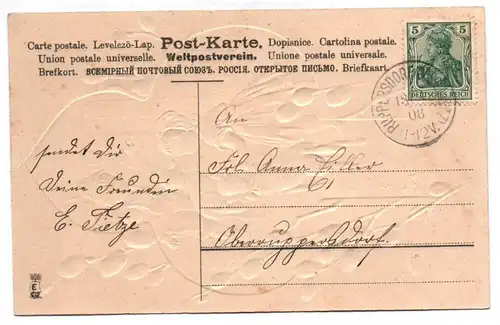 Carte postale. Levelező-Lap. Post-Karte. Dopisnice. Cartolina postale.
Union postale universelle. Weltpostverein. Unione postale universale.
Brefkort. ВСЕМІРНЫЙ ПОЧТОВЫЙ СОЮЗЪ. РОССІЯ. ОТКРЫТОЕ ПИСЬМО. Briefkaart.
5 5
DEUTSCHES REICH
08
sendet Dir
Deine Freundin
E. Tietze
An
Frl. Anna
61
Oberruppersdorf.